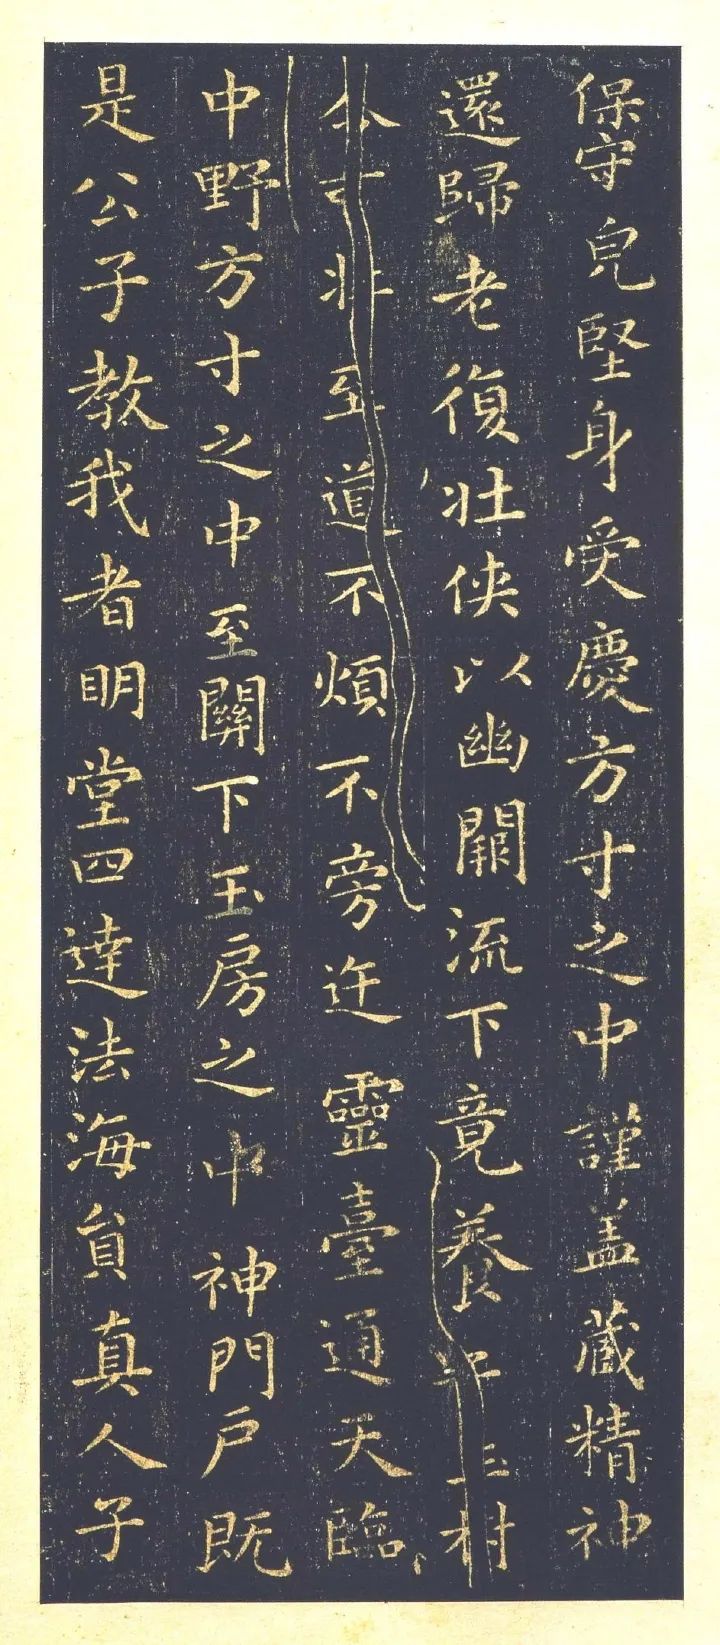 保守皃堅身受慶方寸之中謹盖藏精神
還歸老復壯俠以幽闕流下竟養玉樹
不可杖至道不煩不旁迕靈臺通天臨
中野方寸之中至關下玉房之中神門戶既
是公子教我者明堂四達法海員真人子